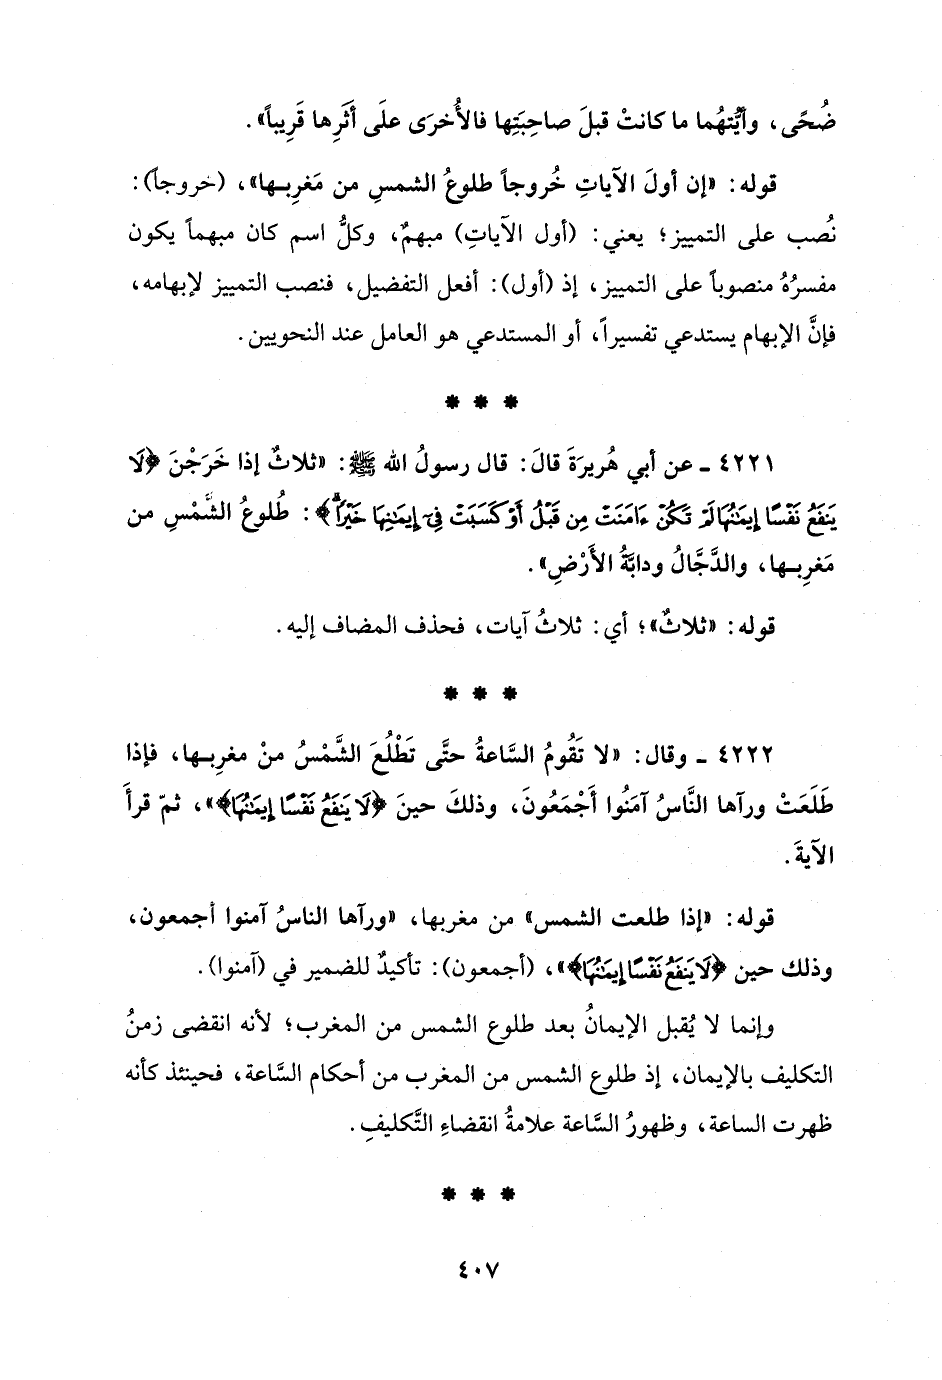 ضُحًى، وأيُّتهُما ما كانتْ قبلَ صاحِبَتِها فالأُخرَى علَى أثَرِها قَرِيباً».
قوله: «إن أولَ الآياتِ خُروجاً طلوعُ الشمسِ من مَغربِـها»، (خروجاً):
نُصب على التمييز؛ يعني: (أول الآياتِ) مبهمٌ، وكلُّ اسم كان مبهماً يكون
مفسرُهُ منصوباً على التمييز، إذ (أول): أفعل التفضيل، فنصب التمييز لإبهامه،
فإنَّ الإبهام يستدعي تفسيراً، أو المستدعي هو العامل عند النحويين.
* * *
٤٢٢١ ـ عن أبي هُريرَةَ قالَ: قال رسولُ الله ﷺ: «ثلاثٌ إذا خَرَجْنَ ﴿لَا
يَنفَعُ نَفْسًا إِيمَٰنُهَا لَمْ تَكُنْ ءَامَنَتْ مِن قَبْلُ أَوْ كَسَبَتْ فِىٓ إِيمَٰنِهَا خَيْرًا﴾: طُلوعُ الشَّمْسِ من
مَغرِبِـها، والدَّجَّالُ ودابَّةُ الأَرْضِ».
قوله: «ثلاثٌ»؛ أي: ثلاثُ آيات، فحذف المضاف إليه.
* * *
٤٢٢٢ ـ وقال: «لا تَقُومُ السَّاعةُ حتَّى تَطْلُعَ الشَّمْسُ منْ مغرِبِـها، فإذا
طَلَعَتْ ورآها النَّاسُ آمَنُوا أجْمَعُونَ، وذلكَ حينَ ﴿لَا يَنفَعُ نَفْسًا إِيمَٰنُهَا﴾»، ثمّ قرأَ
الآيةَ.
قوله: «إذا طلعت الشمس» من مغربها، «ورآها الناسُ آمنوا أجمعون،
وذلك حين ﴿لَا يَنفَعُ نَفْسًا إِيمَٰنُهَا﴾»، (أجمعون): تأكيدٌ للضمير في (آمنوا).
وإنما لا يُقبل الإيمانُ بعد طلوع الشمس من المغرب؛ لأنه انقضى زمنُ
التكليف بالإيمان، إذ طلوع الشمس من المغرب من أحكام السَّاعة، فحينئذ كأنه
ظهرت الساعة، وظهورُ السَّاعة علامةُ انقضاءِ التَّكليفِ.
* * *
٤٠٧